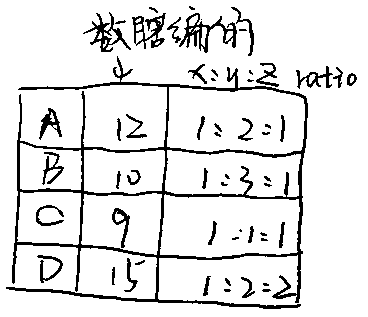 数瞎编的
↓ x:y:z ratio
A 12 1:2:1
B 10 1:3:1
C 9 1:1:1
D 15 1:2:2